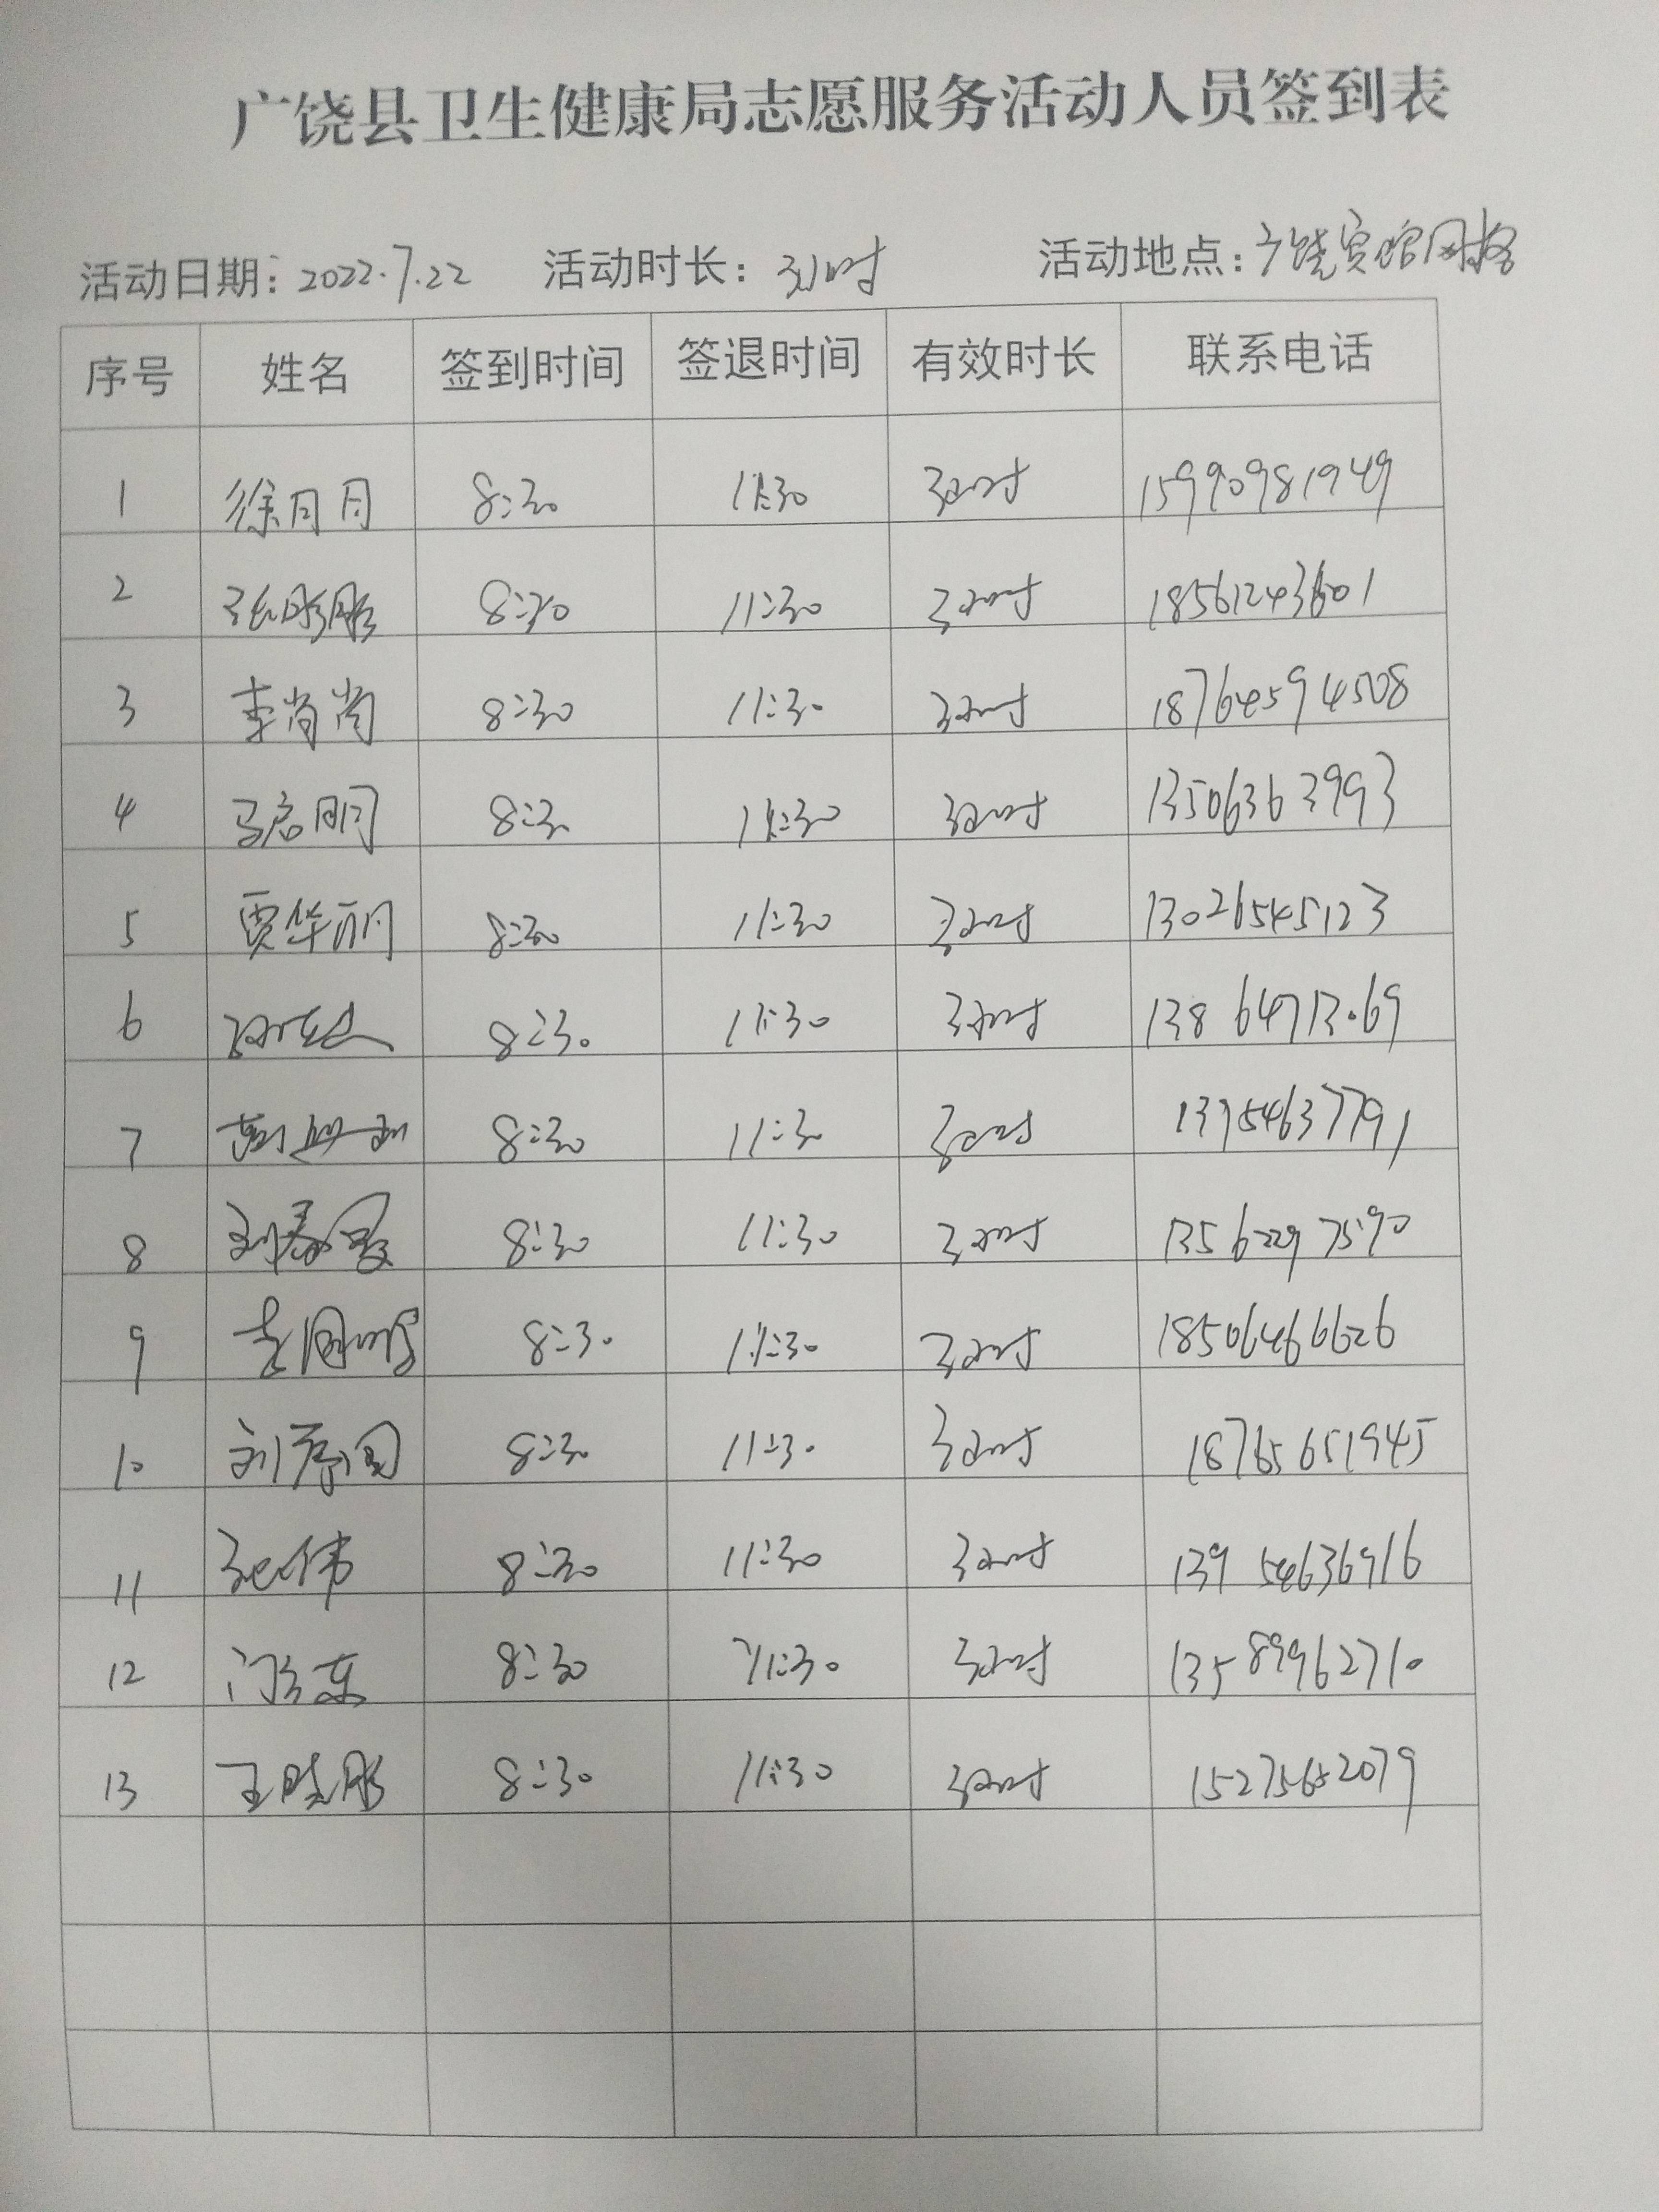 广饶县卫生健康局志愿服务活动人员签到表
活动日期：2022.7.22 活动时长：3小时 活动地点：广饶宾馆网格
序号 姓名 签到时间 签退时间 有效时长 联系电话
1 徐月月 8:30 11:30 3小时 15990981949
2 张彤彤 8:30 11:30 3小时 18561243601
3 李肖肖 8:30 11:30 3小时 18764594508
4 马启明 8:30 11:30 3小时 13506363993
5 贾华丽 8:30 11:30 3小时 13026545123
6 8:30 11:30 3小时 13864713069
7 8:30 11:30 3小时 13954637791
8 刘春霞 8:30 11:30 3小时 13562297590
9 8:30 11:30 3小时 18506466626
10 8:30 11:30 3小时 18765651945
11 张伟 8:30 11:30 3小时 13954636916
12 8:30 11:30 3小时 13589962710
13 王晓彤 8:30 11:30 3小时 15275652079